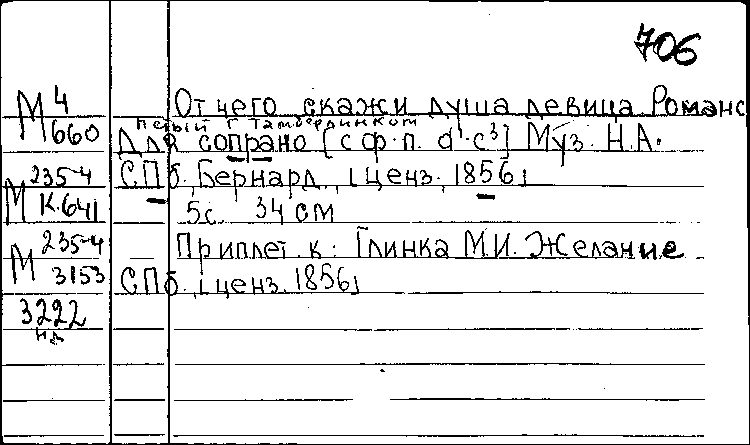 706
М 4
660
От чего скажи душа девица Романс
петый Г Тамберликом
Для сопрано [с ф.п. d¹-c³] Муз. Н.А.
М 235-4
К.641
СПб, Бернард, [ценз. 1856]
5с. 34 см
М 235-4
3153
Приплет. к: Глинка М.И. Желание
СПб, [ценз. 1856]
3222